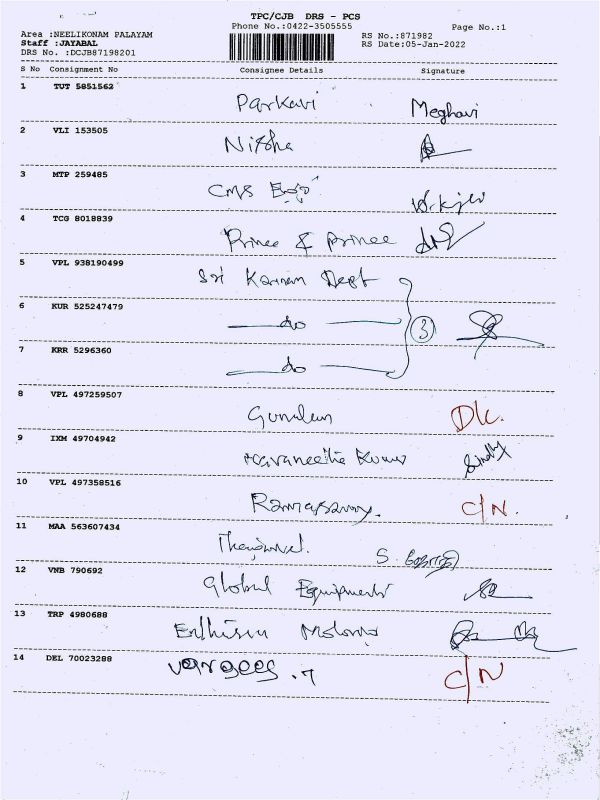 TPC/CJB DRS - PCS
Phone No.:0422-3505555
Page No.:1
Area :NEELIKONAM PALAYAM
Staff :JAYABAL
DRS No. :DCJB87198201
RS No.:871982
RS Date:05-Jan-2022
S No Consignment No Consignee Details Signature
1 TUT 5851562 Parkavi Meghavi
2 VLI 153505 Nisha
3 MTP 259485 CMS
4 TCG 8018839 Prince & Prince
5 VPL 938190499 Sri Kannan Dept
6 KUR 525247479 do 3
7 KRR 5296360 do
8 VPL 497259507 Gunalan D/c.
9 IXM 49704942 Navaneetha Kumar Sindhu
10 VPL 497358516 Ramasamy. C/N.
11 MAA 563607434 S.
12 VNB 790692 Global Equipments
13 TRP 4980688
14 DEL 70023288 C/N